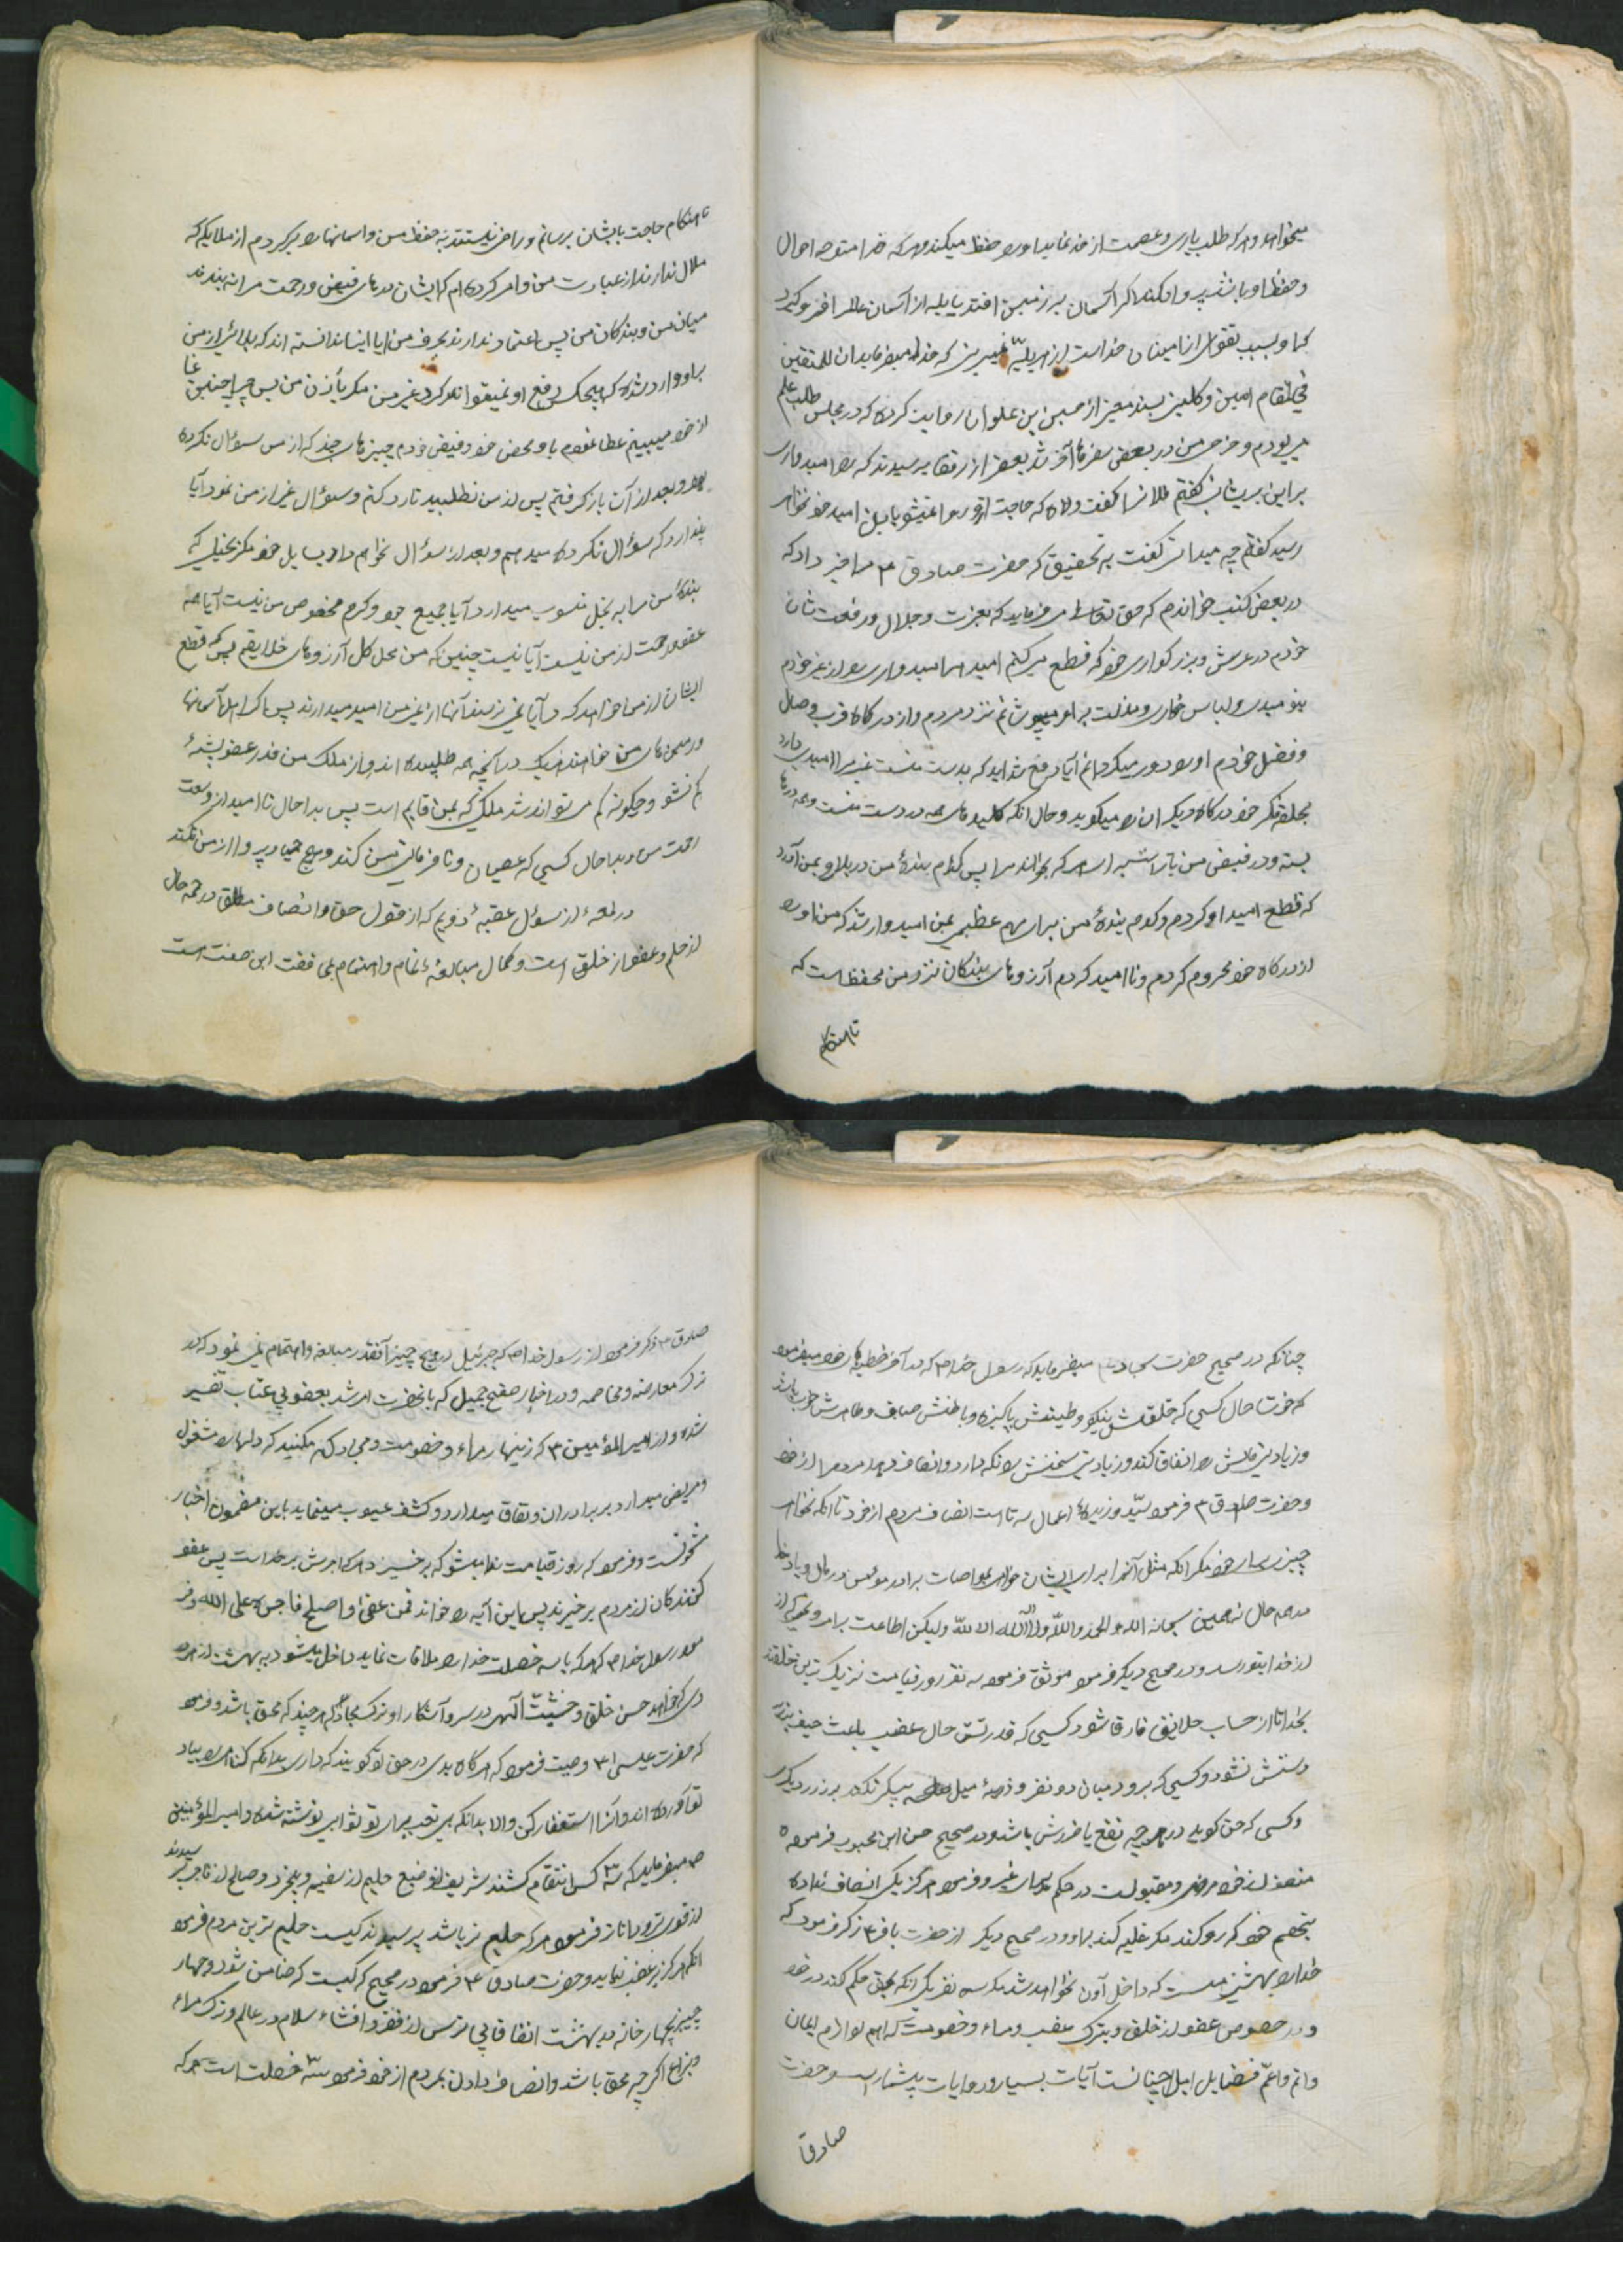 میخواهد و هر که طلب یاری و عصمت از خدا نماید او را حفظ میکند و هر که خدا متوجه احوال
و حفظ او باشد پروا نکند اگر آسمان بر زمین افتد یا بلیه از آسمان عالم را فرو گیرد
چه او بسبب تقوی از ایمنان خداست از هر بلیه نمی بینی که خدا میفرماید ان المتقین
فی مقام امین و کلینی بسند معتبر از حسین بن علوان روایت کرده که در مجلس طلب علم
می بودم و خرجی من در بعضی سفرها آخر شد بعضی از رفقا پرسیدند که را امیدواری
براین پریشانی گفتم فلان را گفت والله که حاجت تو روا نمیشود باین امید خود نخواهی
رسید گفتم چه میدانی گفت به تحقیق که حضرت صادق ع مرا خبر داد که
در بعضی کتب خواندم که حق تعالی میفرماید که بعزت و جلال و رفعت شان
خودم در عرش و بزرگواری خود که قطع می کنم امید هر امیدواری را از غیر خودم
بنومیدی و لباس خواری و مذلت بر او میپوشانم نزد مردم و از درگاه قرب و وصال
و فضل خودم او را دور میگردانم آیا در رفع شداید که بدست منست غیر مرا امید میدارد
بحلقه فکر خود درگاه دیگران را میکوبد و حال آنکه کلیدهای همه در دست منست و همه درها
بسته و در فیض من باز است برای هر که بخواند مرا پس کدام بنده من در بلا رو بمن آورد
که قطع امید او کردم و کدام بنده من برای مهم عظیمی بمن امیدوار شد که من او را
از درگاه خود محروم کردم و نا امید کردم آرزوهای بندگان نزد من محفظ است که
تا هنگام
تا هنگام حاجت بایشان برسانم و راضی نیستند به حفظ من و آسمانها را پر کردم از ملایکه که
ملال ندارند از عبادت من و امر کرده ام که ایشان درهای فیض و رحمت مرا نه بندند
میان من و بندگان من پس اعتماد ندارند بحرف من آیا اینها ندانسته اند که بلائی از من
بر او وارد شده که هیچکس دفع او نمیتواند کرد غیر من مگر باذن من پس چرا چنین غافل
از خود میبینم عطا نمودم باو بمحض جود و فیض خودم چیزهای چند که از من سؤال نکرده
بود و بعد از آن باز گرفتم پس از من نطلبید تا رد کنم و سؤال غیر از من نمود آیا
پندارد که سؤال نکرده میدهم و بعد از سؤال نخواهم داد بسایل خود مگر بخیلی که
بنده من مرا به بخل منسوب میدارد آیا جمیع جود و کرم مخصوص من نیست آیا همه
عفو و رحمت از من نیست آیا نیست چنین که من محل کل آرزوهای خلایقم پس که قطع
ایشان از من خواهد کرد و آیا نمی ترسند آنها از غیر من امید میدارند پس اگر اهل آسمانها
و زمین های من خواهند و هر یک را آنچه همه طلبیده اند از ملک من قدر عضو پشه
کم نشود و چگونه کم تواند شد ملکی که بمن قایم است پس بدا حال نا امیدان از وسعت
رحمت من و بدا حال کسی که عصیان و نافرمانی من کند و هیچ حیا و پروا از من نکند
در لمعه از سؤال عقبه دویم که از قول حق و انصاف مطلق در همه حال
از حلم و عفو از خلق است و کمال مبالغه تمام و اهتمام علی فقت این صفت است
چنانکه در صحیح حضرت سجاد ع میفرماید که رسول خدا ص که در آخر خطبه های خود میفرمود
که خوشا حال کسی که خلقش نیکو و طینتش پاکیزه و باطنش صاف و ظاهرش خوب باشد
و زیادتی مالش را انفاق کند و زیادتی سخنش را نگه دارد و انصاف دهد مردم را از خود
و حضرت صادق ع فرمود سید و زبده اعمال سه تا است انصاف مردم از خود تا آنکه نخواهی
چیزی برای خود مگر آنکه مثل آنرا برای ایشان خواهی مواسات برادر مؤمن در مال و یاد خدا
در همه حال نه همین سبحان الله و الحمد لله و لا اله الا الله ولیکن اطاعت بامر و نهی که از
از خدا بتو رسد و در صحیح دیگر فرمود موثق فرمود سه نفر روز قیامت نزدیک ترین خلقند
بخدا تا از حساب خلایق فارغ شود کسی که قدرتش حال غضب باعث حیف بزیر
دستش نشود و کسی که برود میان دو نفر و ذره میل بیکی نکند بر زر دیگری
و کسی که حق گوید در هر چه نفع یا ضررش باشد و در صحیح حسن ابن محبوب فرموده
منصف از خود مرضی و مقبولست در حکم برای غیر و فرمود هرگز یکی انصاف نداده
بخصم خود که رو کند مگر غلبه کند بر او و در صحیح دیگر از حضرت باقر ع ذکر فرمود که
خدا را بهشتی هست که داخل آن نخواهد شد مگر سه نفر یکی آنکه بحق حکم کند در خود
و در خصوص عفو از خلق و ترک غضب و مراء و خصومت که اهم لوازم ایمان
و اتم و اعم فضایل اهل جنانست آیات بسیار و روایات بیشمار است و حضرت
صادق
صادق ع ذکر فرمود از رسول خدا ص که جبرئیل در هیچ چیز آنقدر مبالغه و اهتمام نمی نمود که در
ترک معارضه و مخاصمه و در اخبار صفح جمیل که بانحضرت امر شد بعفو بی عتاب تفسیر
شده و از امیر المؤمنین ع که زنهار مراء و خصومت و مجادله مکنید که دلها را مشغول
و مریض میدارد بر برادران و نفاق میدارد و کشف عیوب مینماید باین مضمون اخبار
و فرمود که روز قیامت ندا میشود که برخیزد هر که اجرش بر خداست پس عفو
کنندگان از مردم برخیزند پس این آیه را خواند فمن عفی و اصلح فاجره علی الله و فر
مود رسول خدا ص که هر که با سه خصلت خدا را ملاقات نماید داخل میشود به بهشت از هر
دری که خواهد حسن خلق و خشیت الهی در سر و آشکار او ترک مجادله هر چند که محق باشد و فرمود
که حضرت عیسی ع وصیت فرمود که هرگاه بدی در حق تو گویند که داری بدانکه گناهی را بیاد
تو آورده اند و از آن استغفار کن والا بدانکه بی تعب برای تو ثوابی نوشته شده و امیر المؤمنین
ع میفرماید که سه کس انتقام نکشند شریف از وضیع حلیم از سفیه و بیخرد و صالح از فاجر پرسیدند
از قوی ترین و داناتر فرمود هر که حلیم تر باشد پرسیدند کیست حلیم ترین مردم فرمود
آنکه هرگز غضب ننماید و حضرت صادق ع فرمود در صحیح که کیست که ضامن شود چهار
چیز بچهار خانه در بهشت انفاق بی ترس از فقر و افشاء سلام در عالم و ترک مراء
و نزاع اگرچه محق باشد و انصاف دادن بمردم از خود فرمود سه خصلت است هر که